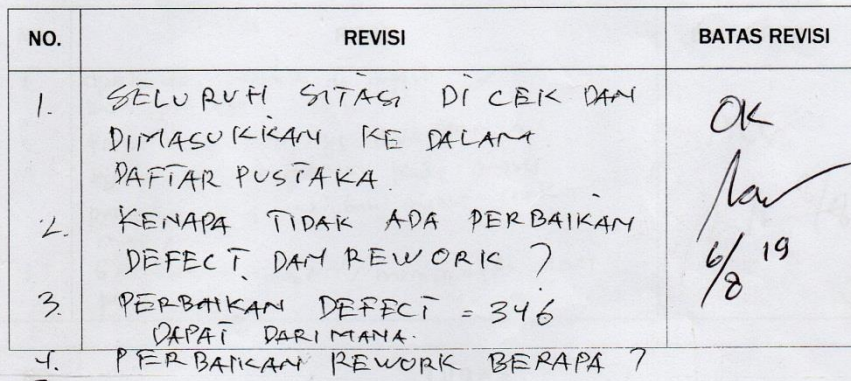 NO. REVISI BATAS REVISI
1. SELURUH SITASI DI CEK DAN
DIMASUKKAN KE DALAM
DAFTAR PUSTAKA.
OK
2. KENAPA TIDAK ADA PERBAIKAN
DEFECT DAN REWORK ?
6/8 19
3. PERBAIKAN DEFECT = 346
DAPAT DARI MANA.
4. PERBAIKAN REWORK BERAPA ?